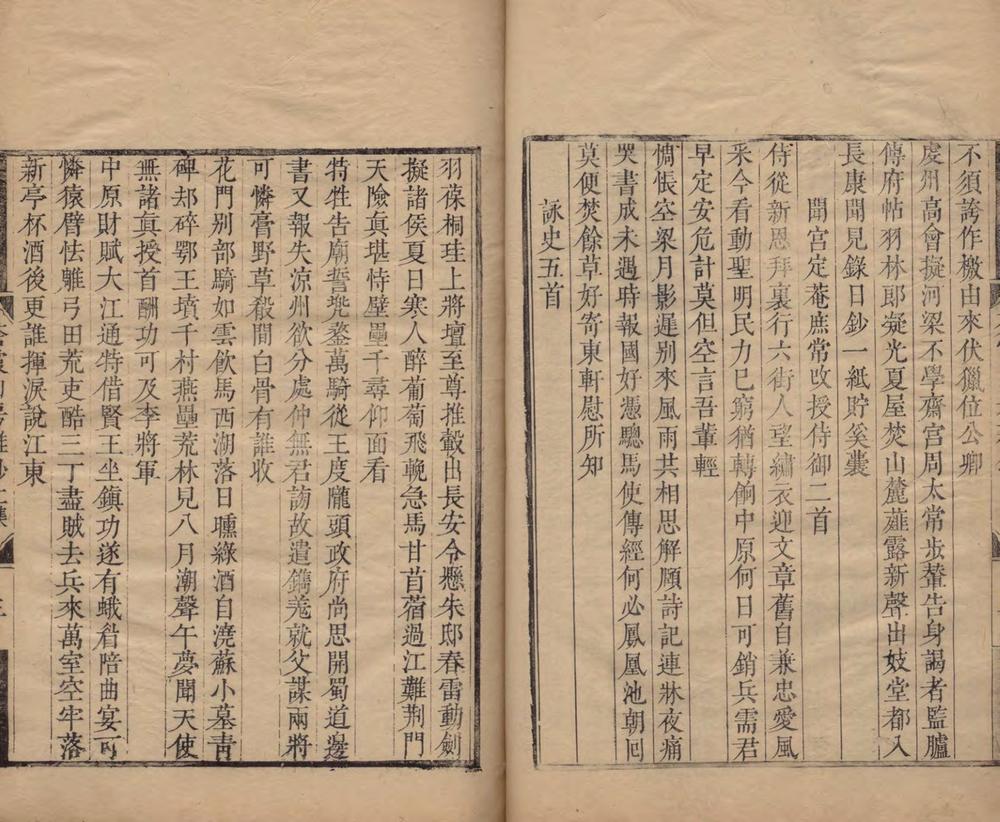 不須誇作檄由來伏獵位公卿
虔州高會擬河梁不學齋宮周太常步輦告身謁者監臚
傳府帖羽林郎凝光夏屋焚山麓薤露新聲出妓堂都入
長康聞見錄日鈔一紙貯奚囊
聞宮定菴庶常改授侍御二首
侍從新恩拜裏行六街人望繡衣迎文章舊自兼忠愛風
采今看動聖明民力已窮猶轉餉中原何日可銷兵需君
早定安危計莫但空言吾輩輕
惆悵空梁月影遲別來風雨共相思解頤詩記連牀夜痛
哭書成未遇時報國好憑驄馬使傳經何必鳳凰池朝囘
莫便焚餘草好寄東軒慰所知
詠史五首
羽葆桐珪上將壇至尊推轂出長安令懸朱邸春雷動劍
擬諸侯夏日寒人醉葡萄飛鞚急馬甘苜蓿過江難荆門
天險真堪恃壁壘千尋仰面看
特牲告廟誓兜鍪萬騎從王度隴頭政府尚思開蜀道邊
書又報失凉州欲分處仲無君謗故遣鐫羗就父謀兩將
可憐膏野草殽間白骨有誰收
花門别部騎如雲飲馬西湖落日曛綠酒自澆蘇小墓靑
碑刦碎鄂王墳千村燕壘荒林見八月潮聲午夢聞天使
無諸真授首酬功可及李將軍
中原財賦大江通特借賢王坐鎮功遂有蛾眉陪曲宴可
憐猿臂怯雕弓田荒吏酷三丁盡賊去兵來萬室空牢落
新亭杯酒後更誰揮淚說江東